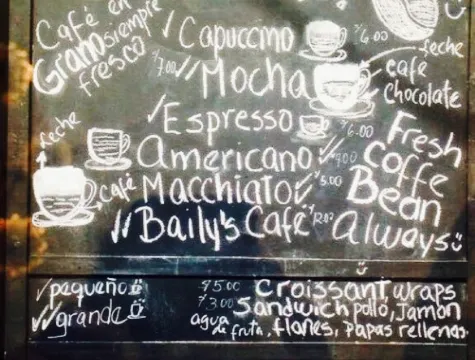 Café en
Grano siempre
fresco
✓Capuccino $6.00
leche
café
chocolate
$7.00 ✓✓Mocha
✓Espresso $6.00
leche
café
Americano✓✓ $7.00
Macchiato✓ $5.00
✓✓Baily's Café $12.00
Fresh
Coffe
Bean
Always
✓pequeño
✓✓grande
$5.00 Croissant, wraps
$3.00 Sandwich pollo, Jamon
agua de fruta, flanes, papas rellenas.